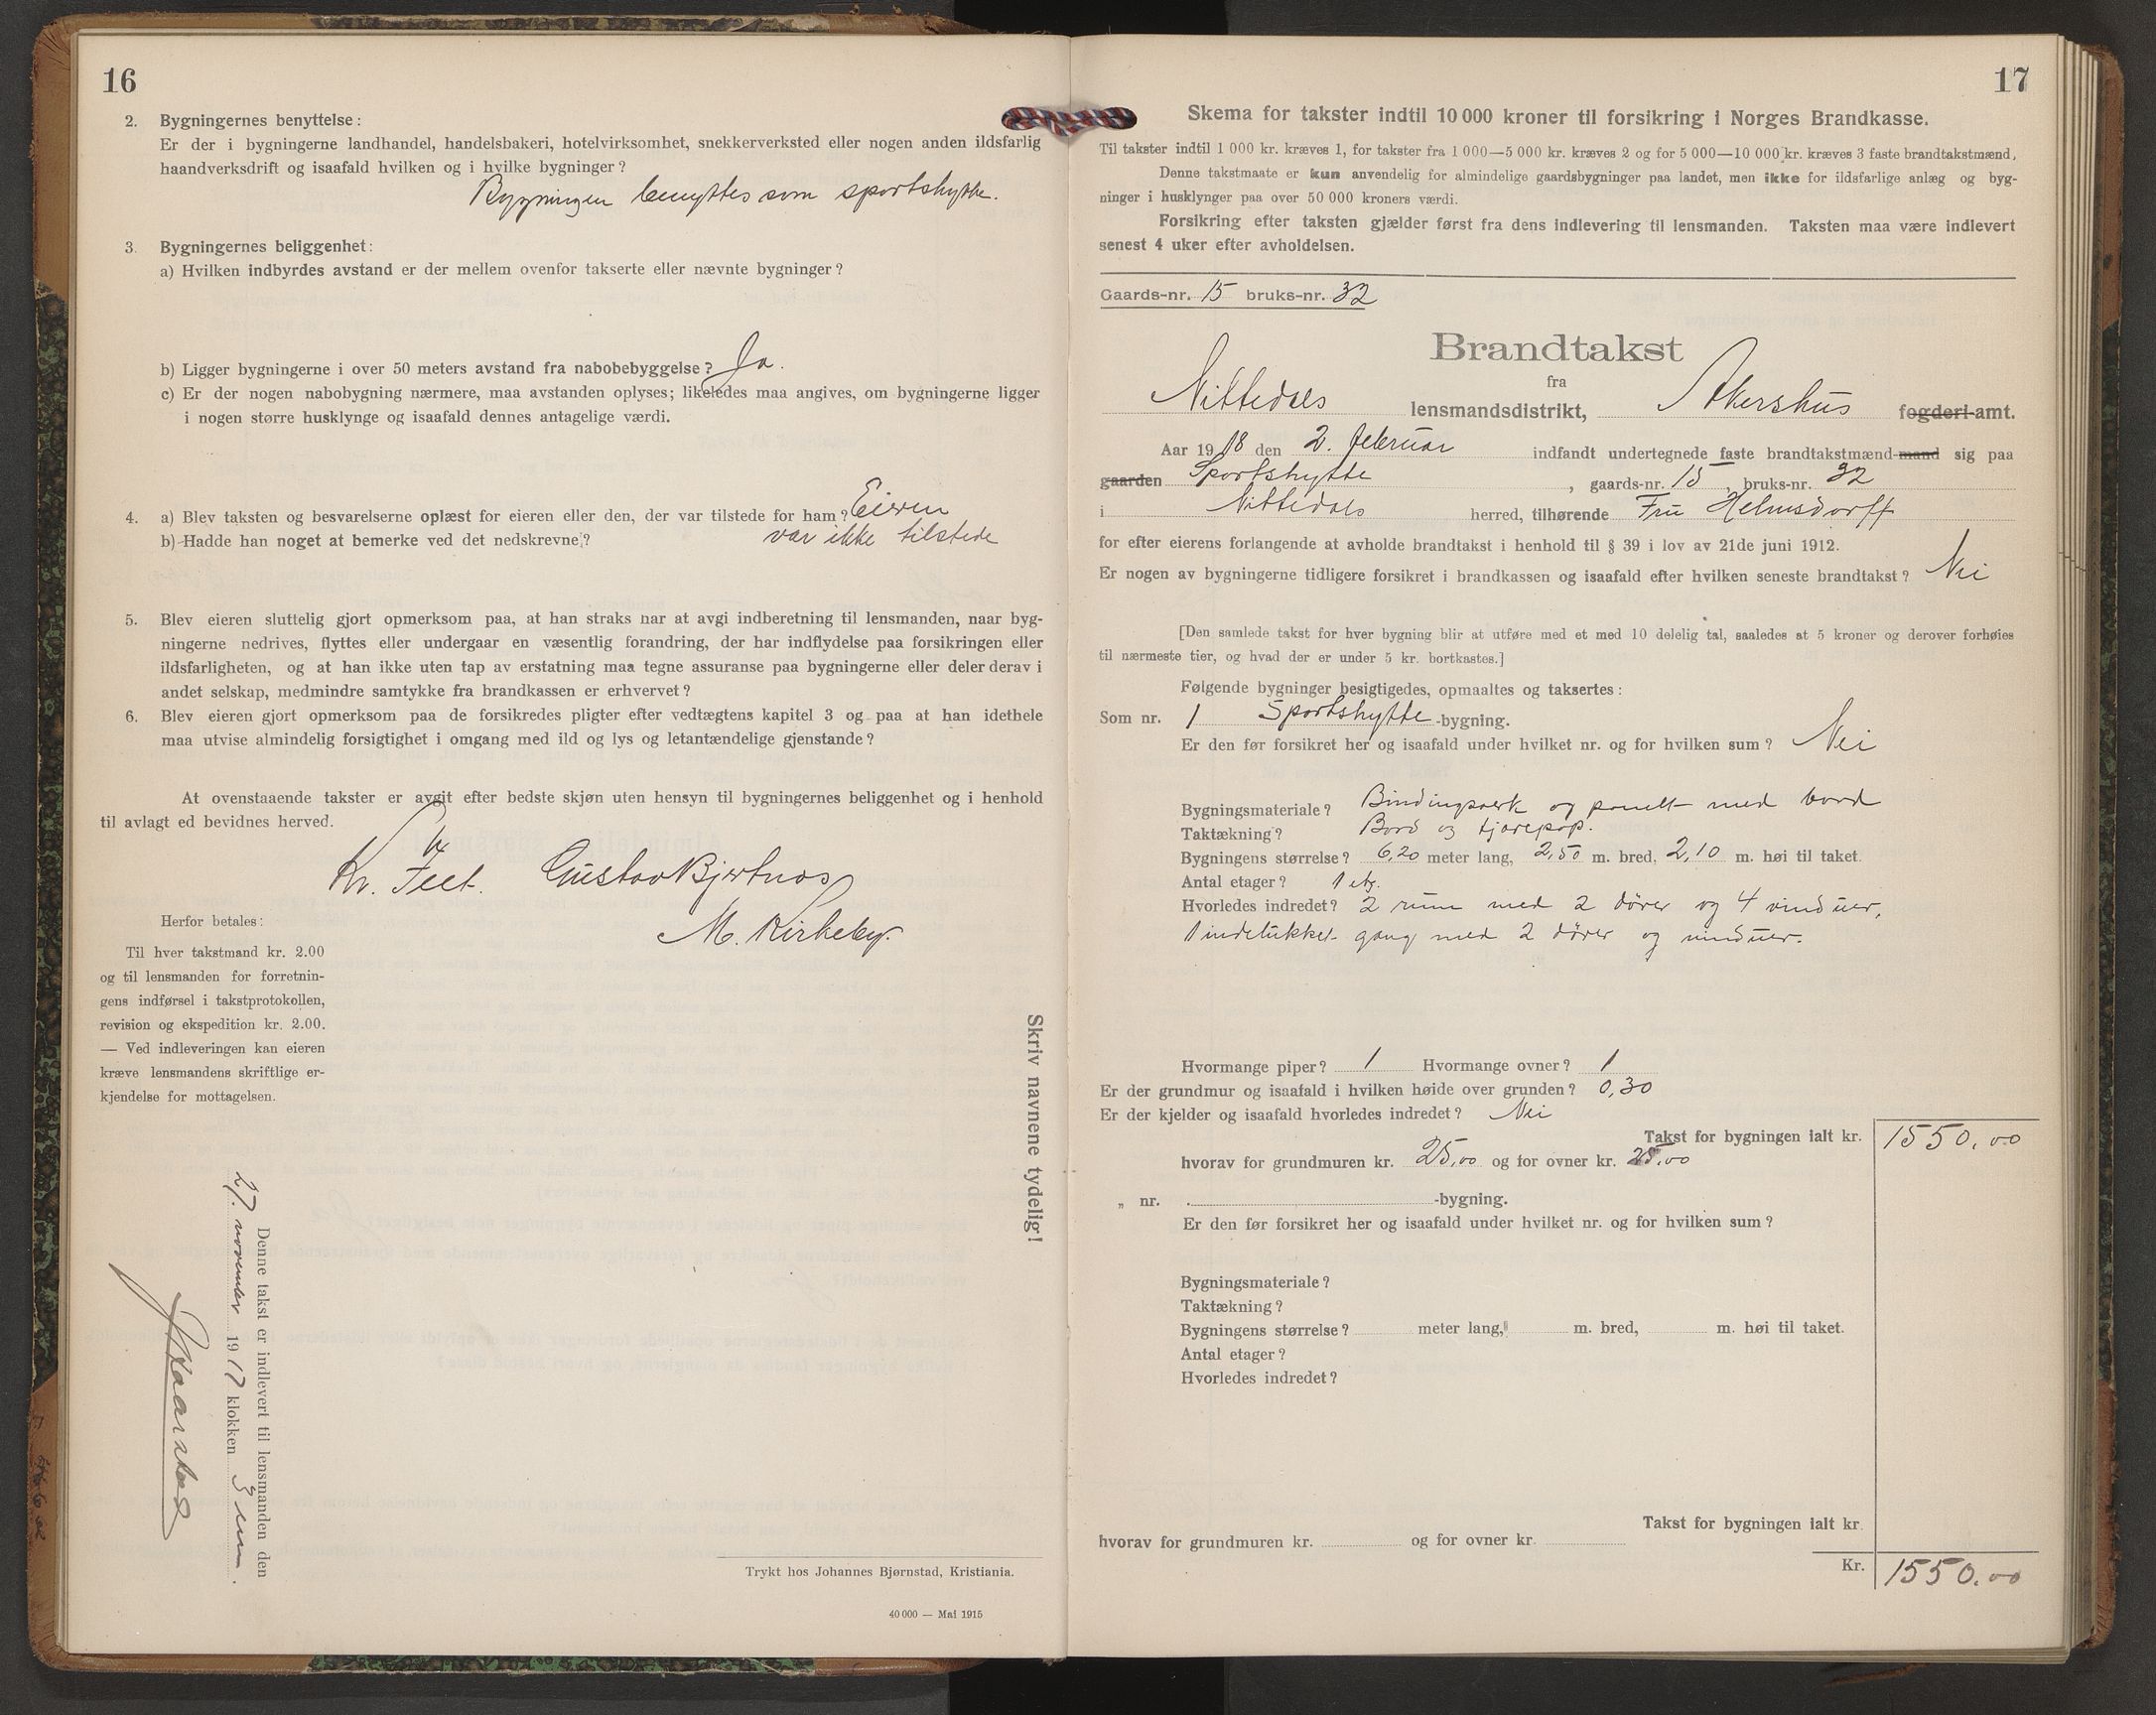 16
2. Bygningernes benyttelse:
Er der i bygningerne landhandel, handelsbakeri, hotelvirksomhet, snekkerverksted eller nogen anden ildsfarlig
haandverksdrift og isaafald hvilken og i hvilke bygninger?
Bygningen benyttes som sportshytte.
3. Bygningernes beliggenhet:
a) Hvilken indbyrdes avstand er der mellem ovenfor takserte eller nævnte bygninger?
b) Ligger bygningerne i over 50 meters avstand fra nabobebyggelse? Ja.
c) Er der nogen nabobygning nærmere, maa avstanden oplyses; likeledes maa angives, om bygningerne ligger
i nogen større husklynge og isaafald dennes antagelige værdi.
4. a) Blev taksten og besvarelserne oplæst for eieren eller den, der var tilstede for ham? Eieren
b) Hadde han noget at bemerke ved det nedskrevne? var ikke tilstede
5. Blev eieren sluttelig gjort opmerksom paa, at han straks har at avgi indberetning til lensmanden, naar byg-
ningerne nedrives, flyttes eller undergaar en væsentlig forandring, der har indflydelse paa forsikringen eller
ildsfarligheten, og at han ikke uten tap av erstatning maa tegne assuranse paa bygningerne eller deler derav i
andet selskap, medmindre samtykke fra brandkassen er erhvervet?
6. Blev eieren gjort opmerksom paa de forsikredes pligter efter vedtægtens kapitel 3 og paa at han idethele
maa utvise almindelig forsigtighet i omgang med ild og lys og letantændelige gjenstande?
At ovenstaaende takster er avgit efter bedste skjøn uten hensyn til bygningernes beliggenhet og i henhold
til avlagt ed bevidnes herved.
Kr. Feet. Gustav Bjertnæs
M. Kirkeby.
Herfor betales:
Til hver takstmand kr. 2.00
og til lensmanden for forretnin-
gens indførsel i takstprotokollen,
revision og ekspedition kr. 2.00.
— Ved indleveringen kan eieren
kræve lensmandens skriftlige er-
kjendelse for mottagelsen.
Skriv navnene tydelig!
Denne takst er indlevert til lensmanden den
27. november 1917 klokken 3 em.
Trykt hos Johannes Bjørnstad, Kristiania.
40 000 — Mai 1915
17
Skema for takster indtil 10 000 kroner til forsikring i Norges Brandkasse.
Til takster indtil 1 000 kr. kræves 1, for takster fra 1 000—5 000 kr. kræves 2 og for 5 000—10 000 kr. kræves 3 faste brandtakstmænd.
Denne takstmaate er kun anvendelig for almindelige gaardsbygninger paa landet, men ikke for ildsfarlige anlæg og byg-
ninger i husklynger paa over 50 000 kroners værdi.
Forsikring efter taksten gjælder først fra dens indlevering til lensmanden. Taksten maa være indlevert
senest 4 uker efter avholdelsen.
Gaards-nr. 15 bruks-nr. 32
Brandtakst
fra
Nittedals lensmandsdistrikt, Akershus fogderi-amt.
Aar 1918 den 2. februar indfandt undertegnede faste brandtakstmænd-mand sig paa
gaarden Sportshytte, gaards-nr. 15, bruks-nr. 32
i Nittedals herred, tilhørende Fru Helmsdorff
for efter eierens forlangende at avholde brandtakst i henhold til § 39 i lov av 21de juni 1912.
Er nogen av bygningerne tidligere forsikret i brandkassen og isaafald efter hvilken seneste brandtakst? Nei
[Den samlede takst for hver bygning blir at utføre med et med 10 delelig tal, saaledes at 5 kroner og derover forhøies
til nærmeste tier, og hvad der er under 5 kr. bortkastes.]
Følgende bygninger besigtigedes, opmaaltes og taksertes:
Som nr. 1 Sportshytte-bygning.
Er den før forsikret her og isaafald under hvilket nr. og for hvilken sum? Nei
Bygningsmateriale? Bindingsverk og panelt med bord
Taktækning? Bord og tjærepap.
Bygningens størrelse? 6,20 meter lang, 2,50 m. bred, 2,10 m. høi til taket.
Antal etager? 1 etg.
Hvorledes indredet? 2 rum med 2 dører og 4 vinduer,
1 indelukket gang med 2 dører og vinduer.
Hvormange piper? 1 Hvormange ovner? 1
Er der grundmur og isaafald i hvilken høide over grunden? 0,30
Er der kjelder og isaafald hvorledes indredet? Nei
Takst for bygningen ialt kr. 1550.00
hvorav for grundmuren kr. 25,00 og for ovner kr. 25,00
„ nr. -bygning.
Er den før forsikret her og isaafald under hvilket nr. og for hvilken sum?
Bygningsmateriale?
Taktækning?
Bygningens størrelse? meter lang, m. bred, m. høi til taket.
Antal etager?
Hvorledes indredet?
Takst for bygningen ialt kr.
hvorav for grundmuren kr. og for ovner kr.
Kr. 1550.00